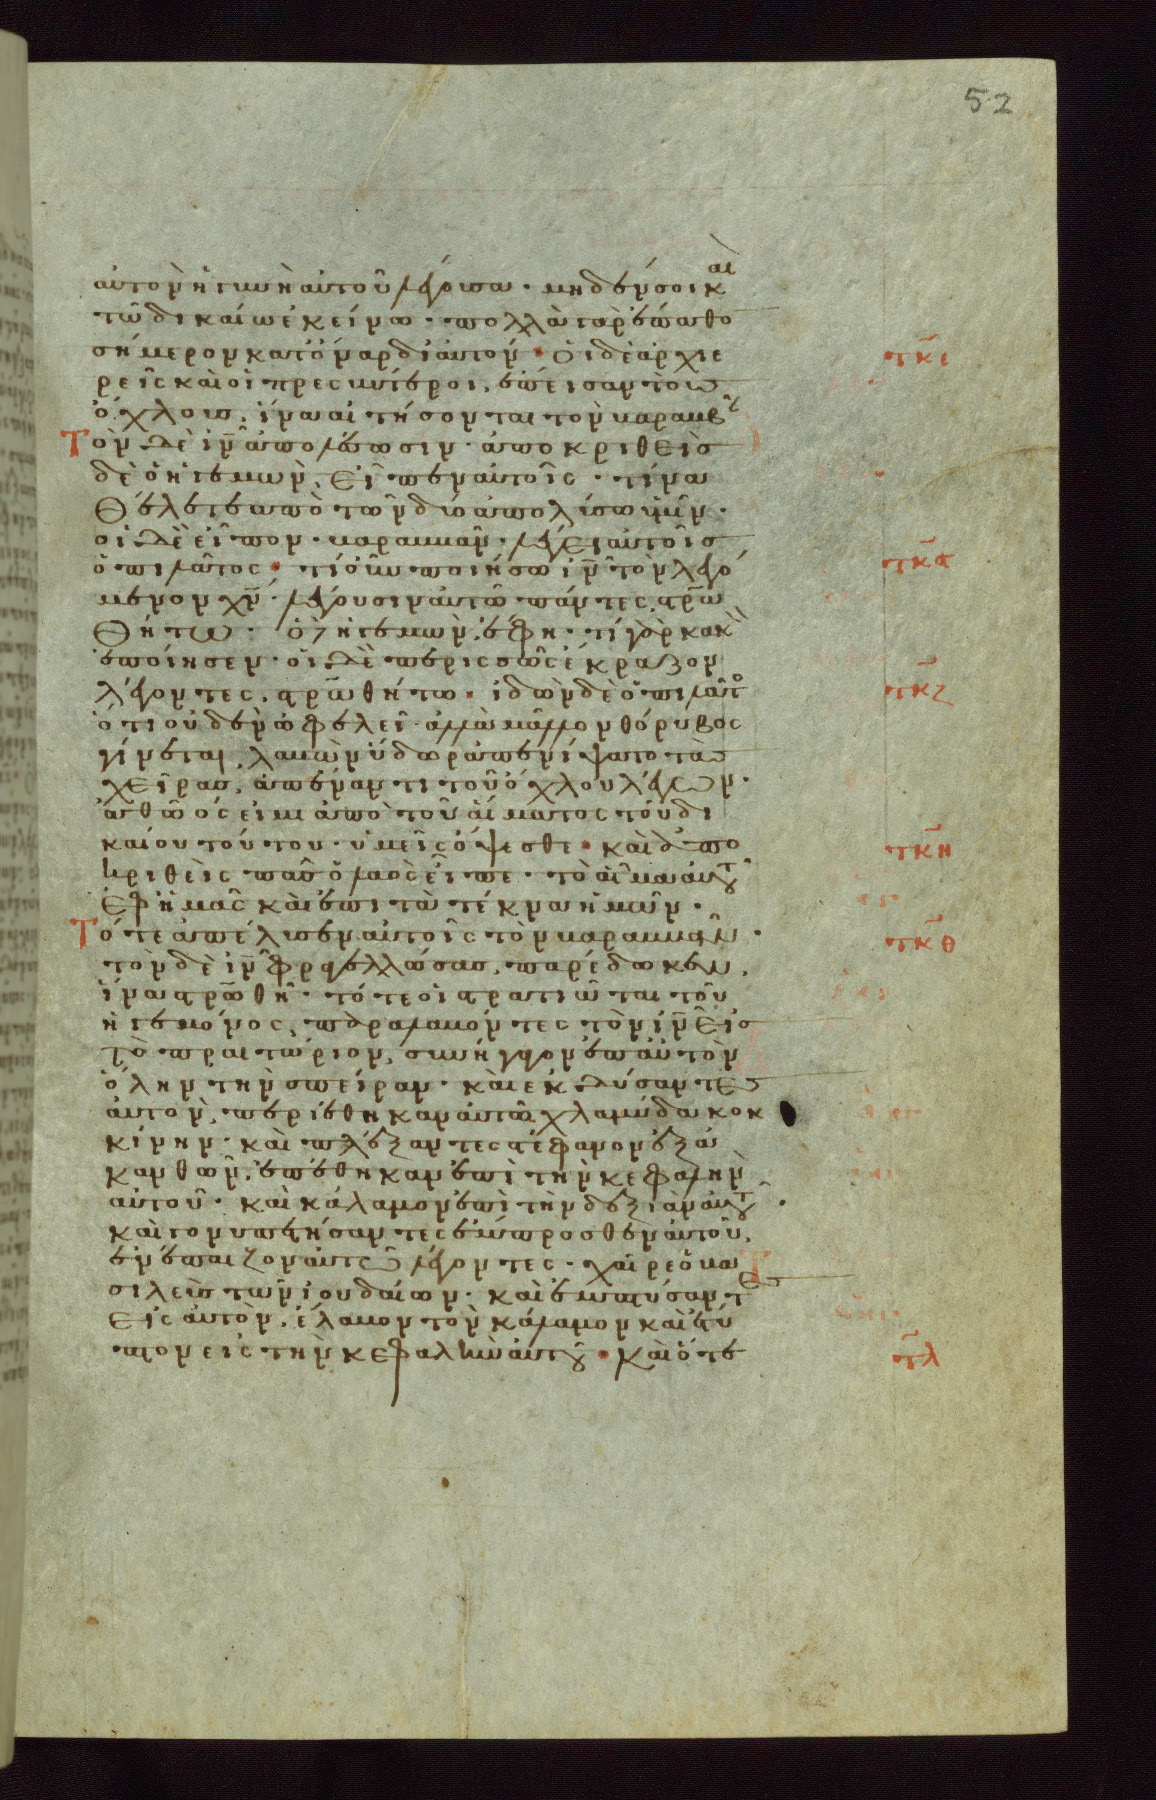 52
αὐτὸν ἡ γυνὴ αὐτοῦ λέγουσα · μηδέν σοι κ(αὶ)
τῶ δικαίω ἐκείνω · πολλὰ γὰρ ἔπαθο
σήμερον κατ' ὄναρ δι' αὐτόν · οἱ δὲ ἀρχιε τκε
ρεῖς καὶ οἱ πρεσβύτεροι, ἔπεισαν τοὺσ
ὄχλουσ, ἵνα αἰτήσονται τὸν βαραββ
Τὸν δὲ ἰν ἀπολέσωσιν · ἀποκριθεὶσ
δὲ ὁ ἡγεμὼν, εἶπεν αὐτοῖς · τίνα
θέλετε ἀπὸ τῶν δύο ἀπολύσω ὑμῖν ·
οἱ δὲ εἶπον · βαραββᾶν · λέγει αὐτοῖσ
ὁ πιλᾶτος · τί οὖν ποιήσω ἰν τὸν λεγό τκϛ
μενον χν · λέγουσιν αὐτῶ πάντες, στρω
θήτω · ὁ δὲ ἡγεμὼν, ἔφη · τί γὰρ κακὸ
ἐποίησεν · οἱ δὲ περισσῶς ἔκραζον
λέγοντες, στρωθήτω · ἰδὼν δὲ ὁ πιλᾶτο τκζ
ὅτι οὐδὲν ὠφελεῖ · ἀλλὰ μᾶλλον θόρυβος
γίνεται, λαβὼν ὕδωρ ἀπενίψατο τὰσ
χεῖρασ, ἀπέναντι τοῦ ὄχλου λέγων ·
ἀθῶός εἰμι ἀπὸ τοῦ αἵματος τοῦ δι
καίου τούτου · ὑμεῖς ὄψεσθε · καὶ ἀπο τκη
κριθεὶς πᾶσ ὁ λαὸς εἶπε · τὸ αἷμα αὐτοῦ
ἐφ' ἡμᾶς καὶ ἐπὶ τὰ τέκνα ἡμῶν ·
Τότε ἀπέλυσεν αὐτοῖς τὸν βαραββᾶν · τκθ
τὸν δὲ ἰν φραγελλώσασ, παρέδωκεν,
ἵνα στρωθῆ · τότε οἱ στρατιῶται τοῦ
ἡγεμόνος, παραλαβόντες τὸν ἰν εἰσ
τὸ πραιτώριον, συνήγαγον ἐπ' αὐτὸν
ὅλην τὴν σπεῖραν · καὶ ἐκδύσαντεσ
αὐτὸν, περιέθηκαν αὐτῶ χλαμύδα κοκ
κίνην · καὶ πλέξαντες στέφανον ἐξ ἀ
κανθῶν, ἐπέθηκαν ἐπὶ τὴν κεφαλὴν
αὐτοῦ · καὶ κάλαμον ἐπὶ τὴν δεξιὰν αὐτοῦ ·
καὶ γονυπετήσαντες ἔμπροσθεν αὐτοῦ,
ἐνέπαιζον αὐτῶ λέγοντες · χαῖρε ὁ βα
σιλεὺσ τῶν ἰουδαίων · καὶ ἐμπτύσαντεσ
εἰς αὐτὸν, ἔλαβον τὸν κάλαμον καὶ ἔτυ
πτον εἰς τὴν κεφαλὴν αὐτοῦ · καὶ ὅτε τλ